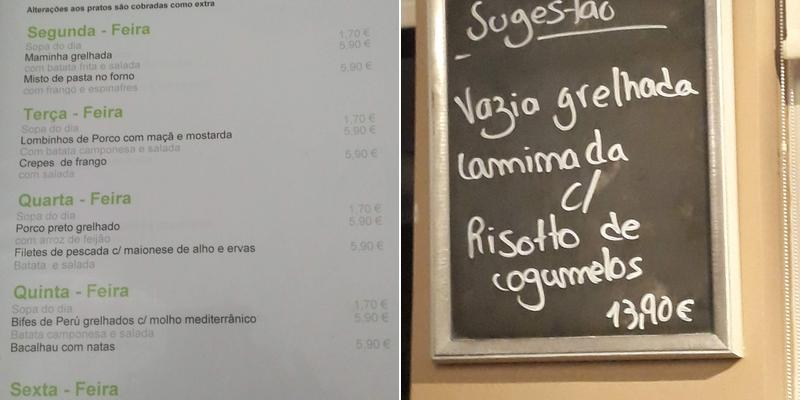 Alterações aos pratos são cobradas como extra
Segunda - Feira
Sopa do dia 1,70 €
Maminha grelhada 5,90 €
com batata frita e salada
Misto de pasta no forno 5,90 €
com frango e espinafres
Terça - Feira
Sopa do dia 1,70 €
Lombinhos de Porco com maçã e mostarda 5,90 €
Com batata camponesa e salada
Crepes de frango 5,90 €
com salada
Quarta - Feira
Sopa do dia 1,70 €
Porco preto grelhado 5,90 €
com arroz de feijão
Filetes de pescada c/ maionese de alho e ervas 5,90 €
Batata e salada
Quinta - Feira
Sopa do dia 1,70 €
Bifes de Perú grelhados c/ molho mediterrânico 5,90 €
Batata camponesa e salada
Bacalhau com natas 5,90 €
Sexta - Feira
Sugestão
Vazia grelhada
laminada
c/
Risotto de
cogumelos
13,90 €